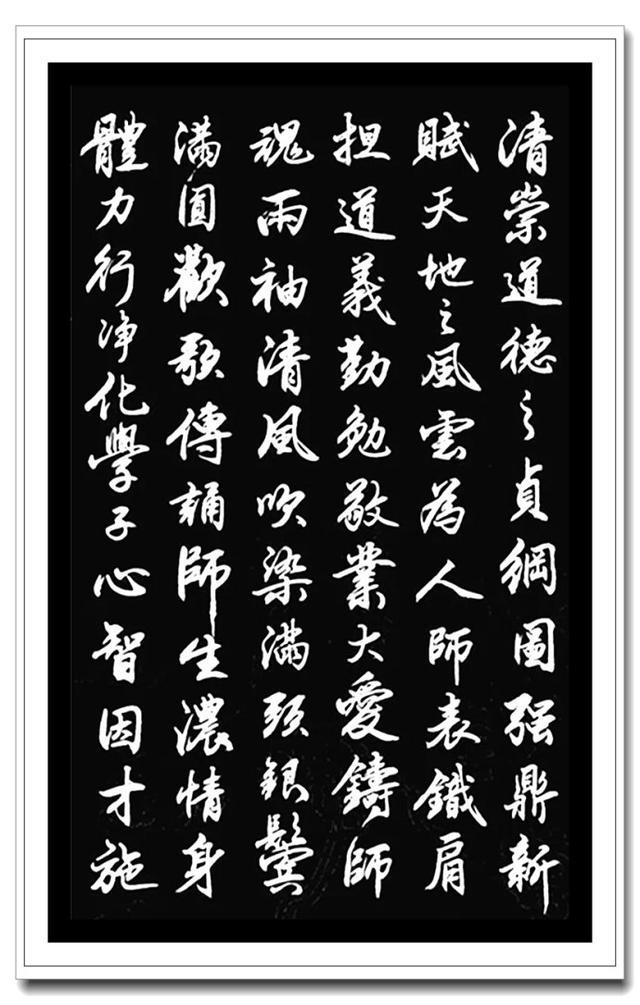 清崇道德之貞綱圖强鼎新
賦天地之風雲為人師表鐵肩
担道義勤勉敬業大愛鑄師
魂兩袖清風吹染滿頭銀鬢
滿圓歡歌傳誦師生濃情身
體力行净化學子心智因才施